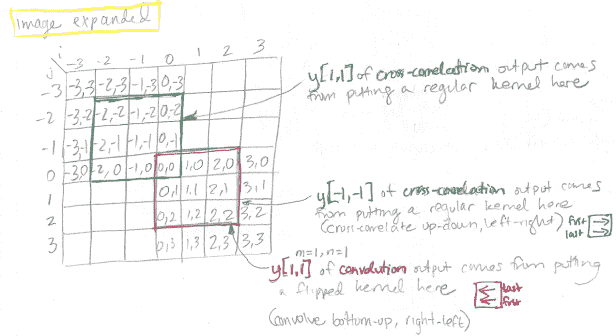 image expanded
i
j
-3 -2 -1 0 1 2 3
-3 -3,-3 -2,-3 -1,-3 0,-3
-2 -3,-2 -2,-2 -1,-2 0,-2
-1 -3,-1 -2,-1 -1,-1 0,-1
0 -3,0 -2,0 -1,0 0,0 1,0 2,0 3,0
1 0,1 1,1 2,1 3,1
2 0,2 1,2 2,2 3,2
3 0,3 1,3 2,3 3,3
y[1,1] of cross-correlation output comes
from putting a regular kernel here
y[-1,-1] of cross-correlation output comes
from putting a regular kernel here
(cross-correlate up-down, left-right)
first
last
m=1, n=1
y[1,1] of convolution output comes from putting
a flipped kernel here
last
first
(convolve bottom-up, right-left)